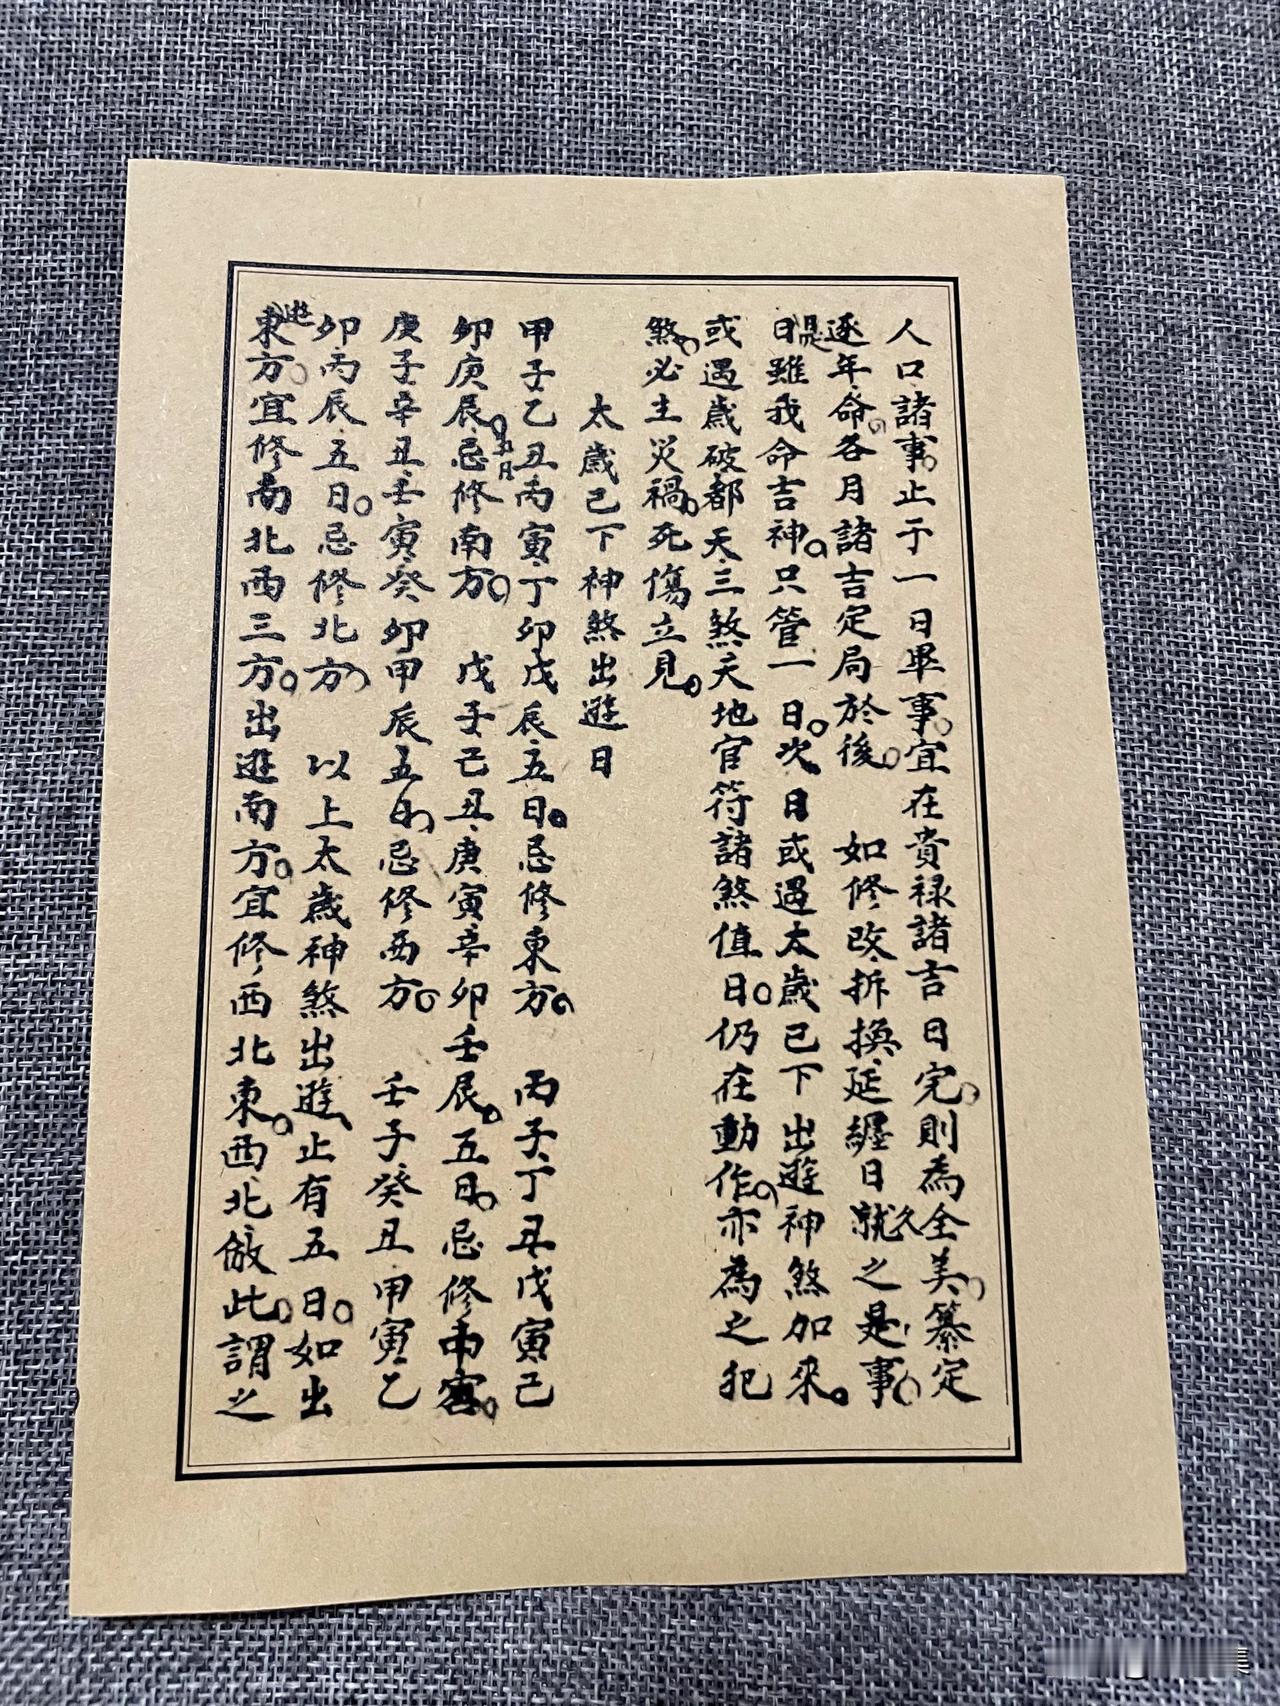 人口諸事止于一日畢事宜在貴祿諸吉日完則為全美纂定
逐年命各月諸吉定局於後 如修改拆換延纏日久就之是事
是日雖我命吉神只管一日次日或遇太歲已下出遊神煞加來
或遇歲破都天三煞天地官符諸煞值日仍在動作亦為之犯
煞必主災禍死傷立見
太歲已下神煞出遊日
甲子乙丑丙寅丁卯戊辰五日忌修東方 丙子丁丑戊寅己
卯庚辰五日忌修南方 戊子己丑庚寅辛卯壬辰五日忌修中宮
庚子辛丑壬寅癸卯甲辰五日忌修西方 壬子癸丑甲寅乙
卯丙辰五日忌修北方 以上太歲神煞出遊止有五日如出
遊東方宜修南北西三方出遊南方宜修西北東西北倣此謂之